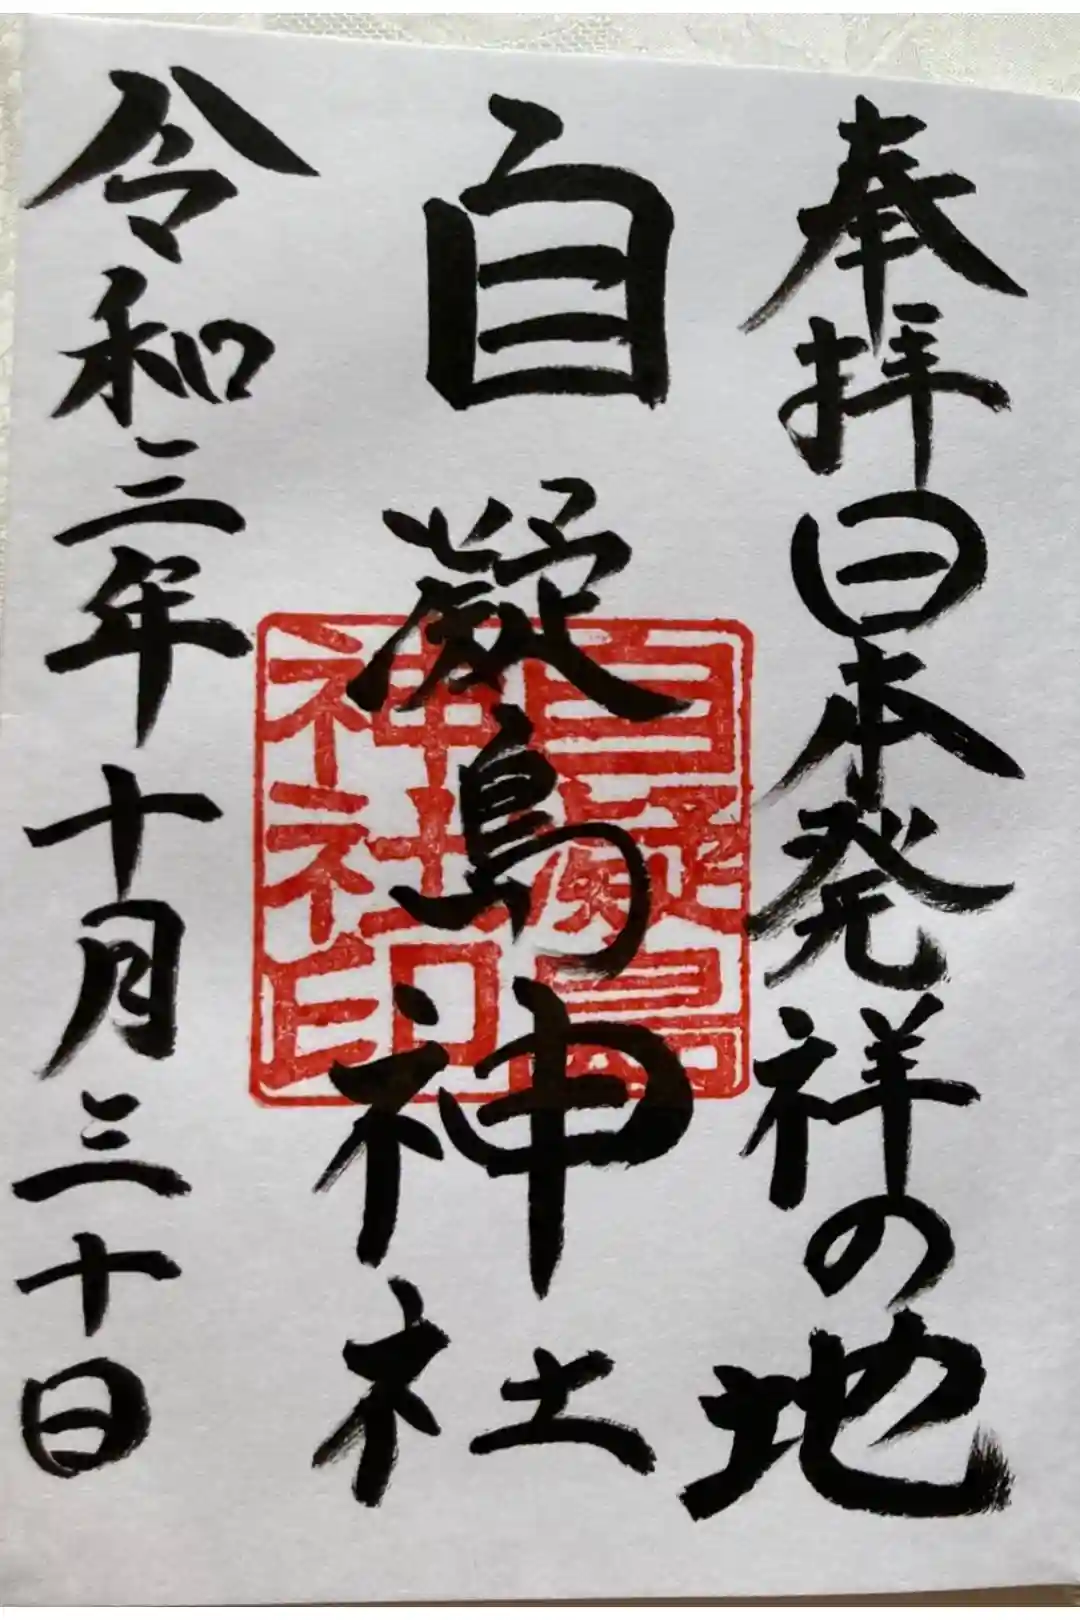 奉拝日本発祥の地
自凝島神社
自凝島
神社印
令和三年十月三十日